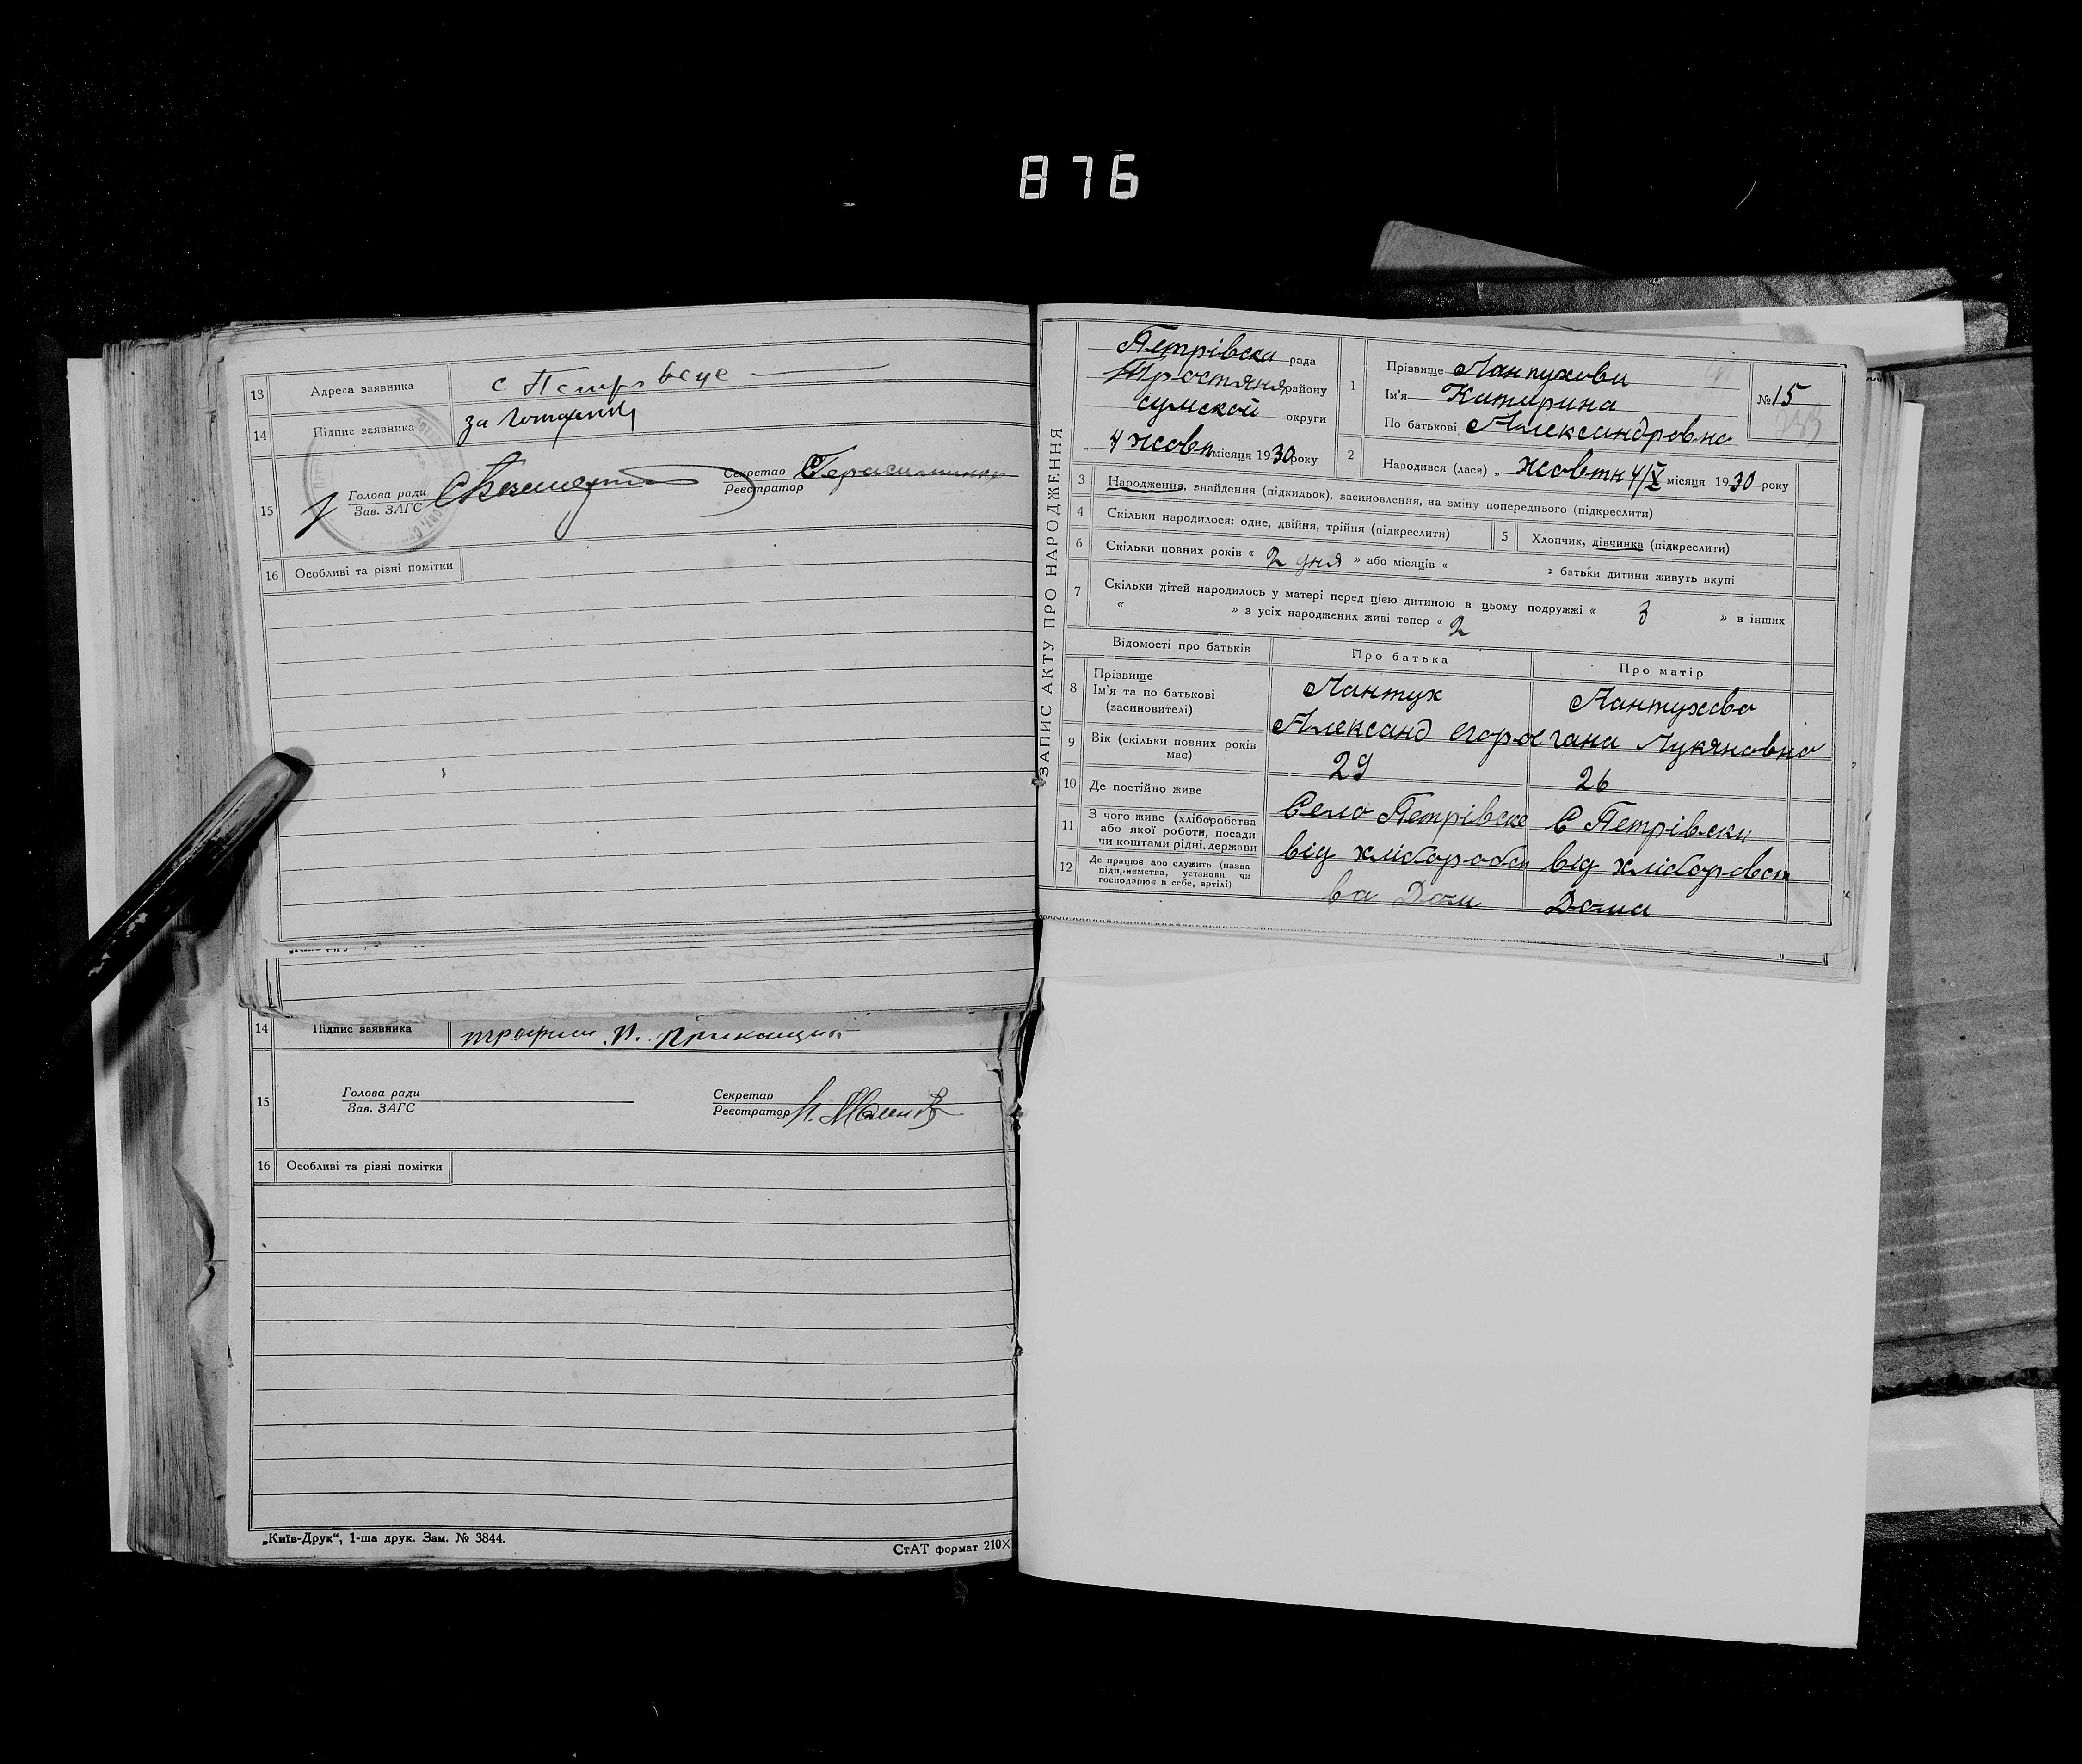 876
13 Адреса заявника с Петровське
14 Підпис заявника за
15 Голова ради Секретар Герасименко
Зав. ЗАГС Реєстратор
16 Особливі та різні помітки
14 Підпис заявника трофим П.
15 Голова ради Секретар
Зав. ЗАГС Реєстратор
16 Особливі та різні помітки
„Київ-Друк“, 1-ша друк. Зам. № 3844.
СтАТ формат 210×
ЗАПИС АКТУ ПРО НАРОДЖЕННЯ
Петрівска рада
Тростяня району
сумской округи
„ 4 жовтн місяця 1930 року
1 Прізвище Лантухова
Ім'я Катирина
По батькові Александровна
№ 15
2 Народився (лася) „ жовтн 4/X місяця 1930 року
3 Народження, знайдення (підкидьок), засиновлення, на зміну попереднього (підкреслити)
4 Скільки народилося: одне, двійня, трійня (підкреслити) 5 Хлопчик, дівчинка (підкреслити)
6 Скільки повних років « 2 дня » або місяців « » батьки дитини живуть вкупі
7 Скільки дітей народилось у матері перед цією дитиною в цьому подружжі « 3 » в інших
« » з усіх народжених живі тепер « 2
Відомості про батьків Про батька Про матір
8 Прізвище Лантух Лантухова
Ім'я та по батькові Александ егоро гана Лукяновна
(засиновителі)
9 Вік (скільки повних років має) 29 26
10 Де постійно живе Село Петрівске С Петрівски
11 З чого живе (хліборобства
або якої роботи, посади
чи коштами рідні, держави від хлібороб від хліборобст
12 Де працює або служить (назва
підприємства, установи чи
господарює в себе, артілі) ва Дом Дома